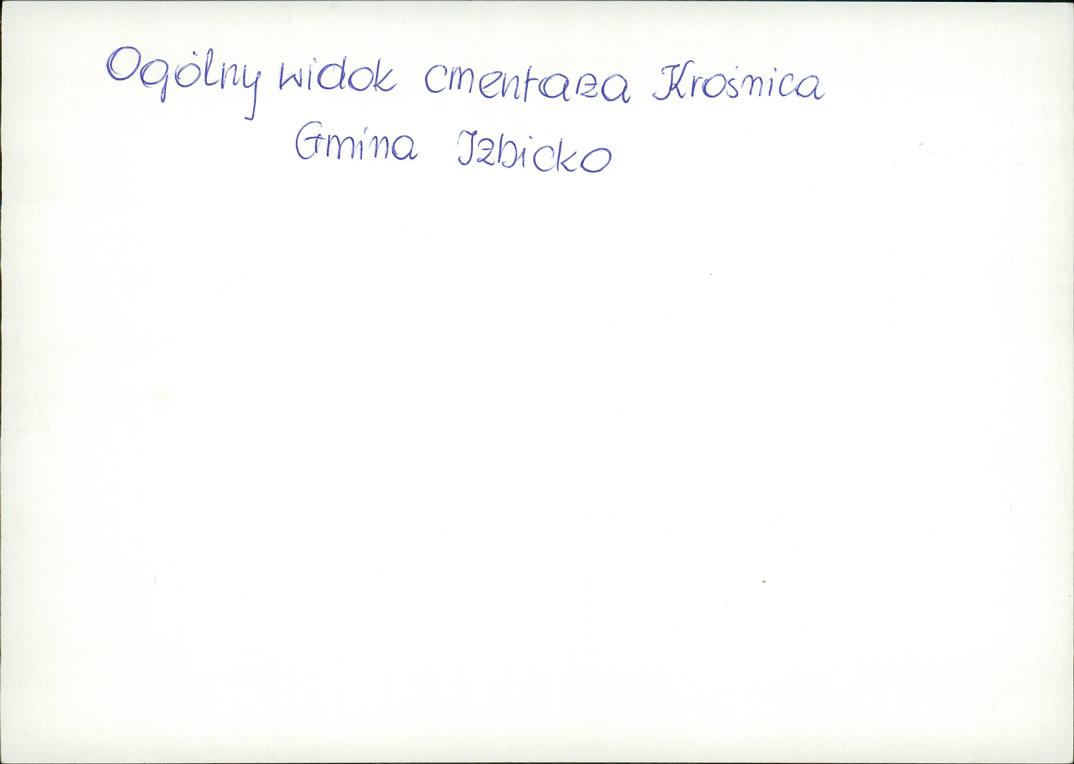 Ogólny widok cmentarza Krośnica
Gmina Izbicko